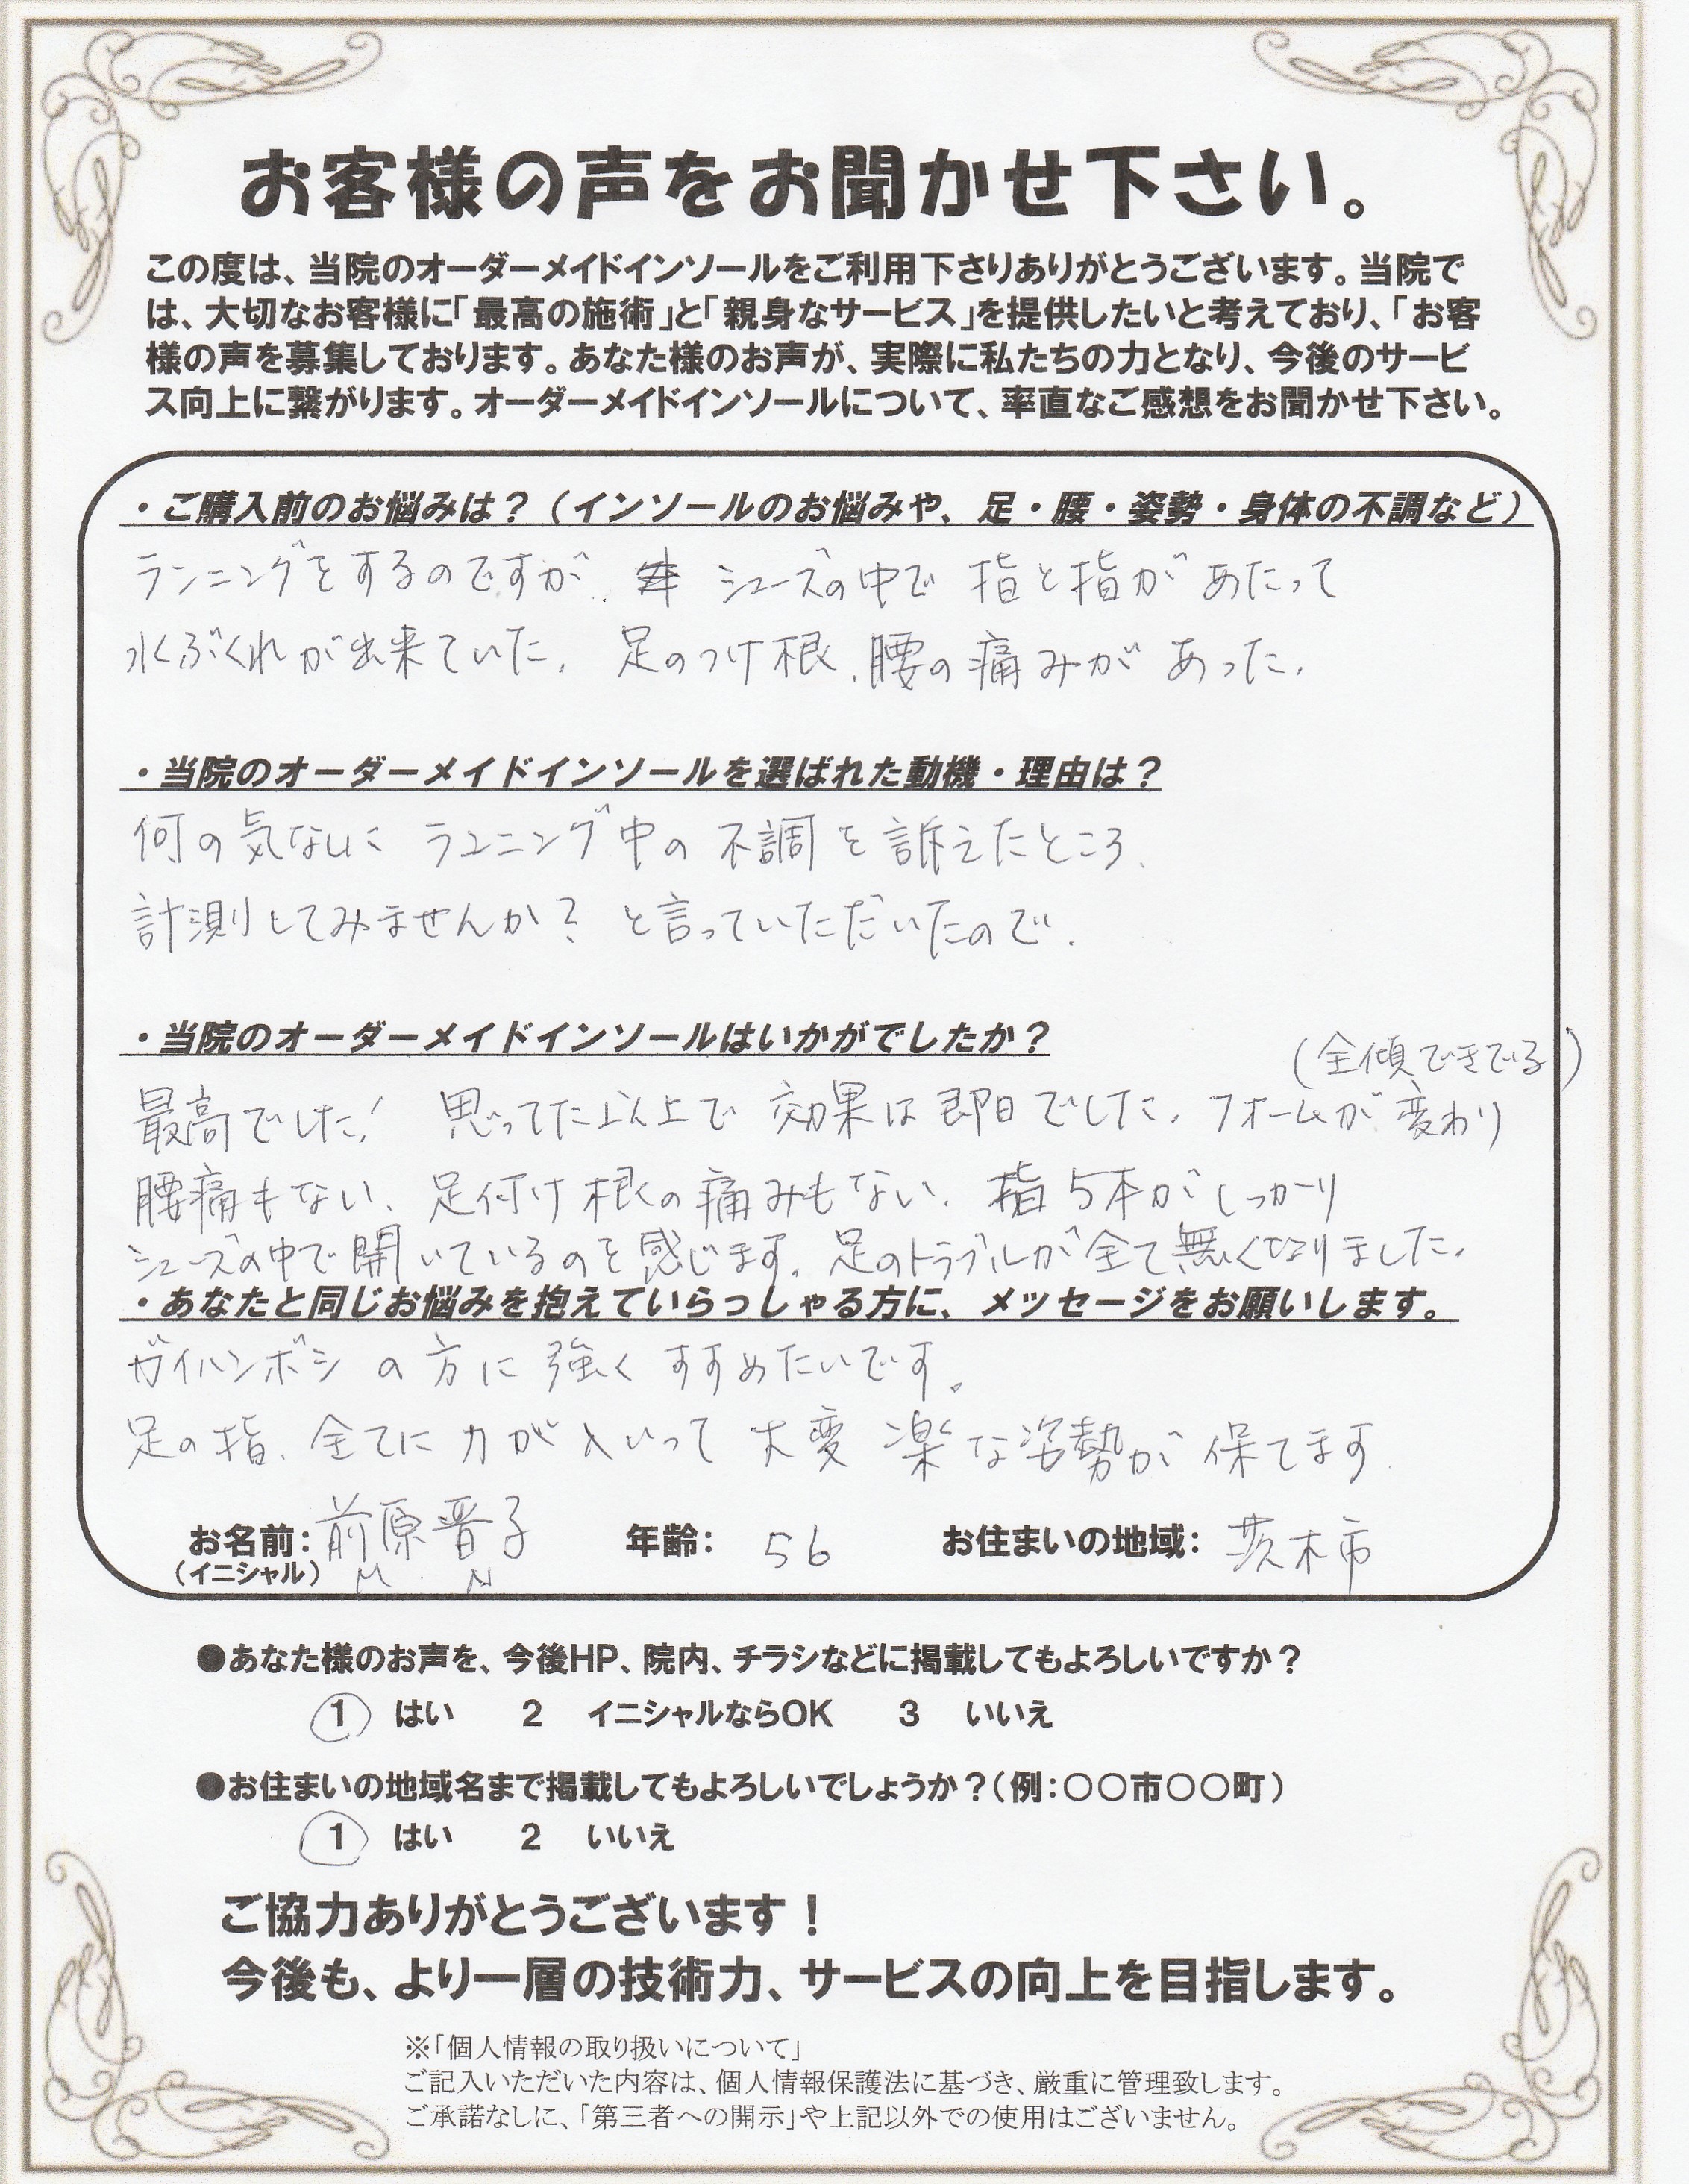 お客様の声をお聞かせ下さい。
この度は、当院のオーダーメイドインソールをご利用下さりありがとうございます。当院で
は、大切なお客様に「最高の施術」と「親身なサービス」を提供したいと考えており、「お客
様の声を募集しております。あなた様のお声が、実際に私たちの力となり、今後のサービ
ス向上に繋がります。オーダーメイドインソールについて、率直なご感想をお聞かせ下さい。
・ご購入前のお悩みは？（インソールのお悩みや、足・腰・姿勢・身体の不調など）
ランニングをするのですが、シューズの中で 指と指があたって
水ぶくれが出来ていた。足のつけ根、腰の痛みがあった。
・当院のオーダーメイドインソールを選ばれた動機・理由は？
何の気なしに ランニング中の不調を訴えたところ、
計測してみませんか？と言っていただいたので。
・当院のオーダーメイドインソールはいかがでしたか？
（全傾できてる）
最高でした！ 思ってた以上で 効果は即日でした。フォームが変わり
腰痛もない、足付け根の痛みもない。指5本がしっかり
シューズの中で開いているのを感じます。足のトラブルが全て無くなりました。
・あなたと同じお悩みを抱えていらっしゃる方に、メッセージをお願いします。
ガイハンボシの方に強くすすめたいです。
足の指、全てに力が入いって大変楽な姿勢が保てます。
お名前： 前原晋子 年齢： 56 お住まいの地域： 茨木市
（イニシャル） M . N
●あなた様のお声を、今後HP、院内、チラシなどに掲載してもよろしいですか？
1 はい 2 イニシャルならOK 3 いいえ
●お住まいの地域名まで掲載してもよろしいでしょうか？（例：○○市○○町）
1 はい 2 いいえ
ご協力ありがとうございます！
今後も、より一層の技術力、サービスの向上を目指します。
※「個人情報の取り扱いについて」
ご記入いただいた内容は、個人情報保護法に基づき、厳重に管理致します。
ご承諾なしに、「第三者への開示」や上記以外での使用はございません。